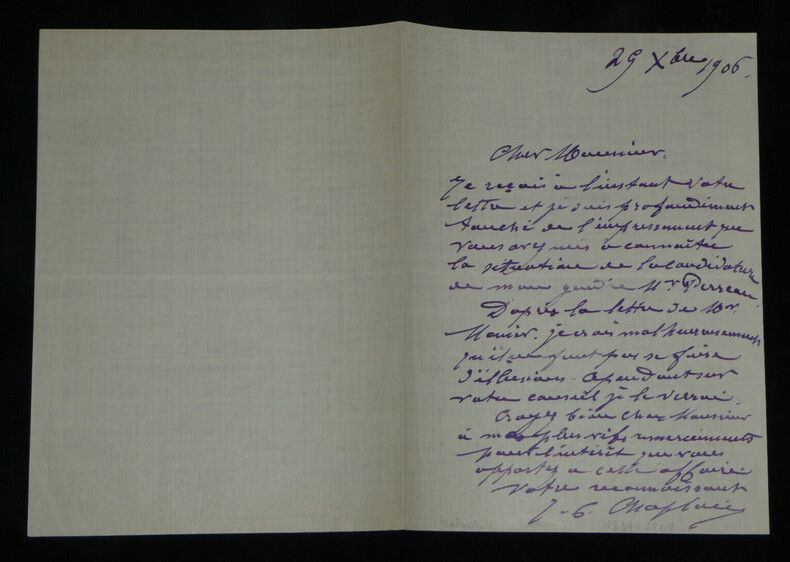 29 Xbre 1906.
Cher Monsieur.
Je reçois à l'instant votre
lettre et je suis profondément
touché de l'empressement que
vous avez mis à connaître
la situation de la candidature
de mon gendre Mr Perreau.
D'après la lettre de Mr.
Monier. je crois malheureusement
qu'il ne faut pas se faire
d'illusions. Cependant sur
votre conseil je le verrai.
Croyez bien cher Monsieur
à mes plus vifs remerciements
pour l'intérêt que vous
apportez à cette affaire
Votre reconnaissant
J. C. Chaplain